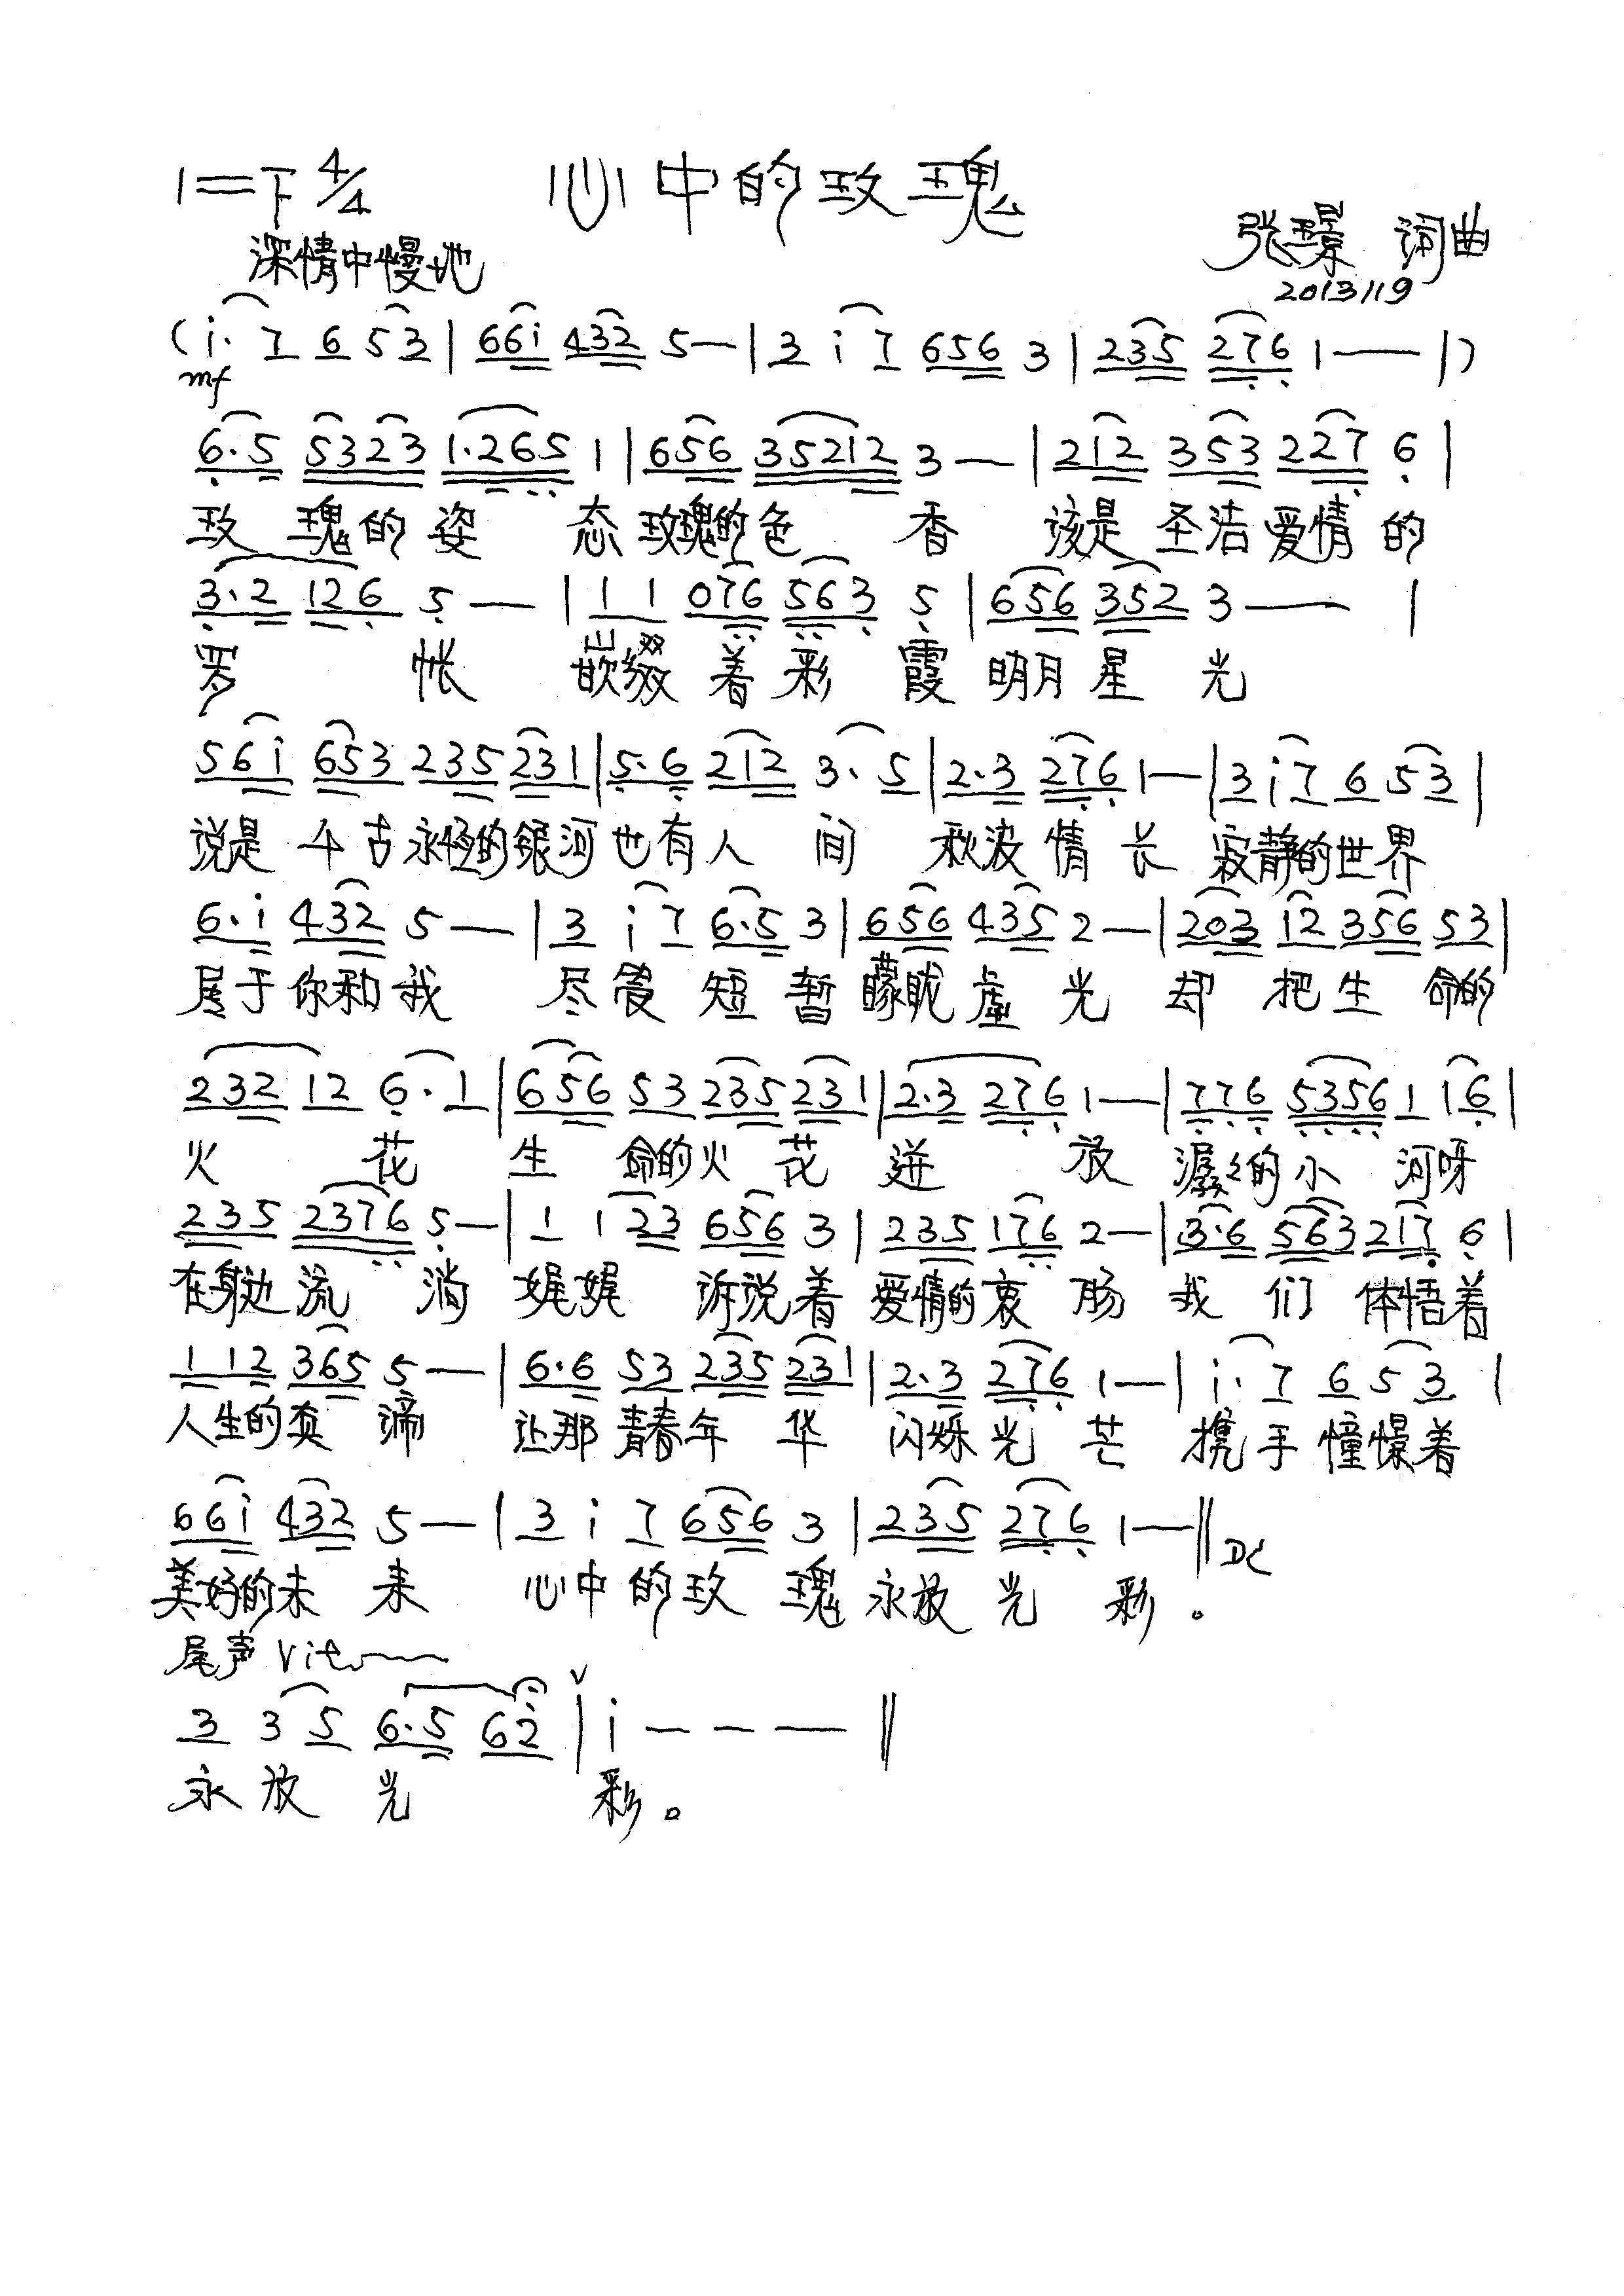 1=F 4/4 心中的玫瑰
深情中慢地
张璟 词曲
2013119
(i· 7 6 5 3 | 6 6 i 4 3 2 5 — | 3 i 7 6 5 6 3 | 2 3 5 2 7 6 1 — — |)
mf
6·5 5323 1·265 1 | 656 35212 3 — | 212 353 227 6 |
玫瑰的姿态玫瑰的色香 该是圣洁爱情的
3·2 126 5 — | 1 1 076 563 5 | 656 352 3 — — |
罗帐 嵌缀着彩霞明月星光
56i 653 235 231 | 5·6 212 3·5 | 2·3 276 1 — | 3 i 7 6 5 3 |
说是千古永恒的银河也有人间秋波情长 寂静的世界
6·i 432 5 — | 3 i 7 6·5 3 | 656 435 2 — | 203 12 356 53 |
属于你和我 尽管短暂朦胧虚光 却把生命的
232 12 6·1 | 656 53 235 231 | 2·3 276 1 — | 776 5356 1 16 |
火花 生命的火花迸放 潺々的小河呀
235 2376 5 — | 1 1 23 656 3 | 235 176 2 — | 3·6 563 217 6 |
在身边流淌 娓娓诉说着爱情的衷肠 我们体悟着
1 1 2 365 5 — | 6·6 53 235 231 | 2·3 276 1 — | i· 7 6 5 3 |
人生的真谛 让那青春年华闪烁光芒 携手憧憬着
66i 432 5 — | 3 i 7 656 3 | 235 276 1 — ‖ DC
美好的未来 心中的玫瑰永放光彩。
尾声 Vit
3 3 5 6·5 62 |V i — — — ‖
永放光彩。